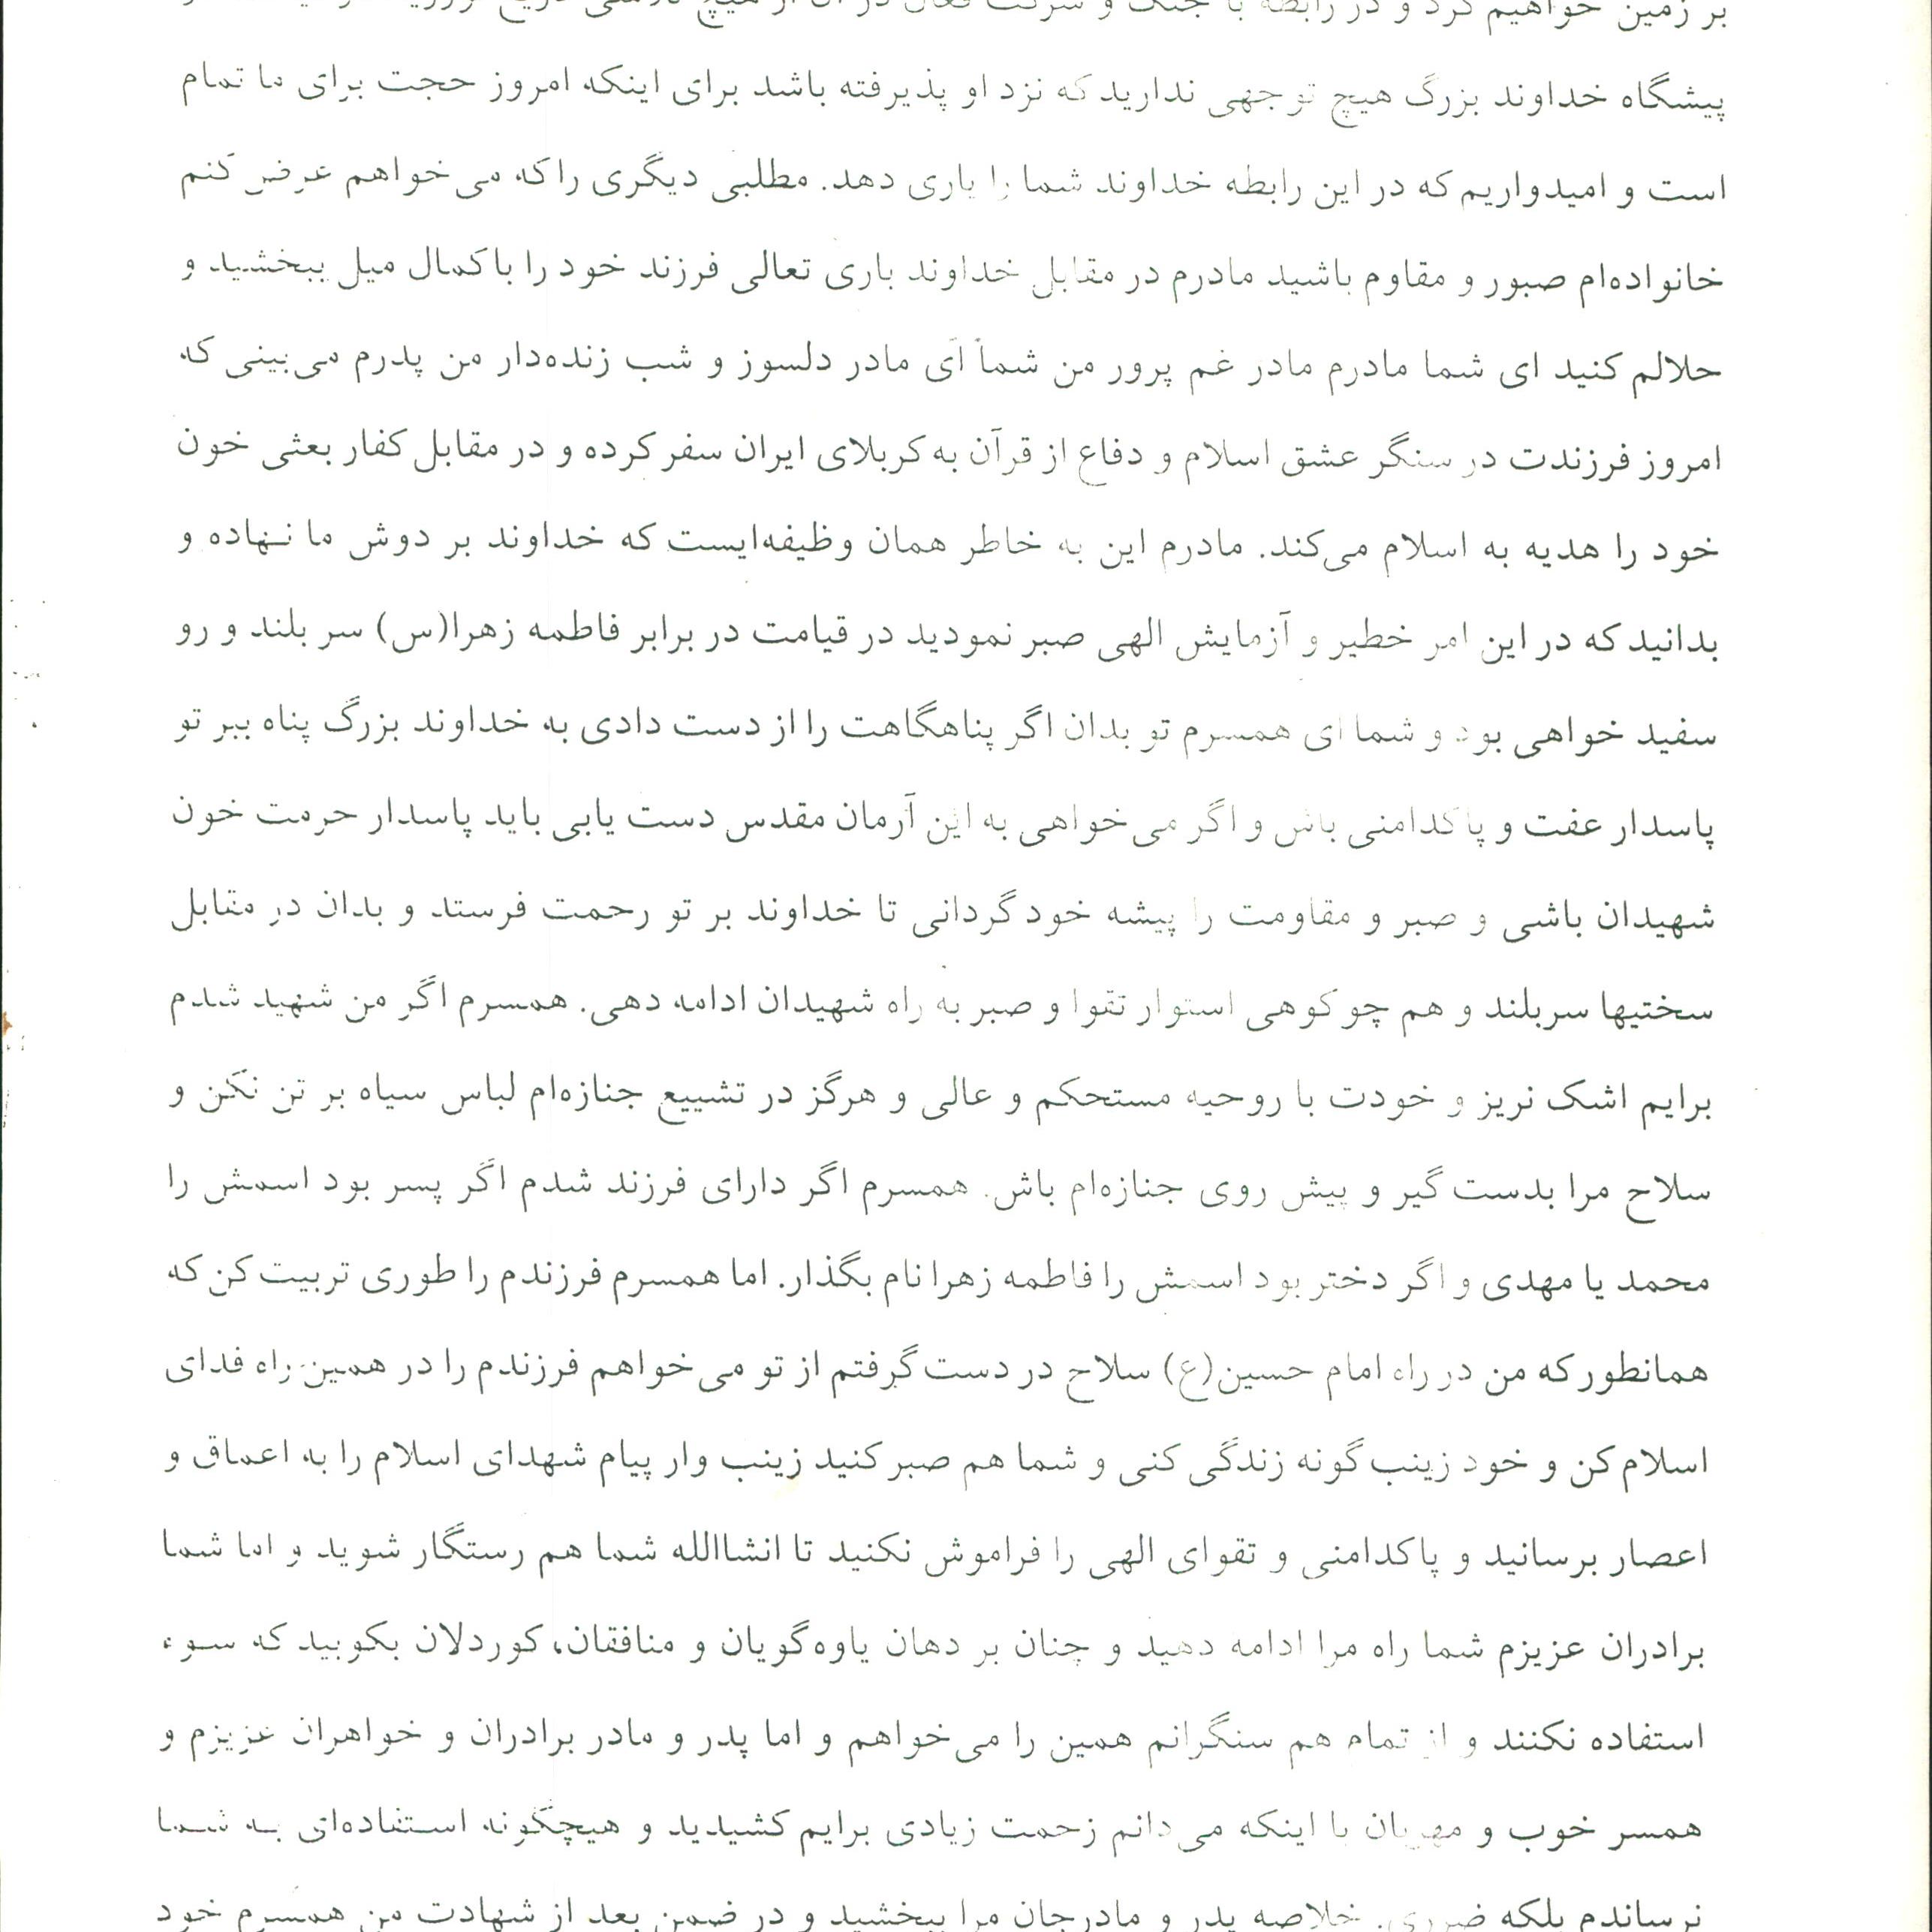 بر زمین خواهیم کرد و در رابطه با جنگ و شرکت فعال در آن از هیچ
پیشگاه خداوند بزرگ هیچ توجهی ندارید که نزد او پذیرفته باشد برای اینکه امروز حجت برای ما تمام
است و امیدواریم که در این رابطه خداوند شما را یاری دهد. مطلبی دیگری را که می‌خواهم عرض کنم
خانواده‌ام صبور و مقاوم باشید مادرم در مقابل خداوند باری تعالی فرزند خود را با کمال میل ببخشید و
حلالم کنید ای شما مادرم مادر غم پرور من شما ای مادر دلسوز و شب زنده‌دار من پدرم می‌بینی که
امروز فرزندت در سنگر عشق اسلام و دفاع از قرآن به کربلای ایران سفر کرده و در مقابل کفار بعثی خون
خود را هدیه به اسلام می‌کند. مادرم این به خاطر همان وظیفه‌ایست که خداوند بر دوش ما نهاده و
بدانید که در این امر خطیر و آزمایش الهی صبر نمودید در قیامت در برابر فاطمه زهرا(س) سر بلند و رو
سفید خواهی بود و شما ای همسرم تو بدان اگر پناهگاهت را از دست دادی به خداوند بزرگ پناه ببر تو
پاسدار عفت و پاکدامنی باش و اگر می‌خواهی به این آرمان مقدس دست یابی باید پاسدار حرمت خون
شهیدان باشی و صبر و مقاومت را پیشه خود گردانی تا خداوند بر تو رحمت فرستد و بدان در مقابل
سختیها سربلند و هم چو کوهی استوار تقوا و صبر به راه شهیدان ادامه دهی. همسرم اگر من شهید شدم
برایم اشک نریز و خودت با روحیه مستحکم و عالی و هرگز در تشییع جنازه‌ام لباس سیاه بر تن نکن و
سلاح مرا بدست گیر و پیش روی جنازه‌ام باش. همسرم اگر دارای فرزند شدم اگر پسر بود اسمش را
محمد یا مهدی و اگر دختر بود اسمش را فاطمه زهرا نام بگذار. اما همسرم فرزندم را طوری تربیت کن که
همانطور که من در راه امام حسین(ع) سلاح در دست گرفتم از تو می‌خواهم فرزندم را در همین راه فدای
اسلام کن و خود زینب گونه زندگی کنی و شما هم صبر کنید زینب وار پیام شهدای اسلام را به اعماق و
اعصار برسانید و پاکدامنی و تقوای الهی را فراموش نکنید تا انشاالله شما هم رستگار شوید و اما شما
برادران عزیزم شما راه مرا ادامه دهید و چنان بر دهان یاوه‌گویان و منافقان، کوردلان بکوبید که سوء
استفاده نکنند و از تمام هم سنگرانم همین را می‌خواهم و اما پدر و مادر برادران و خواهران عزیزم و
همسر خوب و مهربان با اینکه می‌دانم زحمت زیادی برایم کشیدید و هیچگونه استفاده‌ای به شما
نرساندم بلکه ضرری. خلاصه پدر و مادرجان مرا ببخشید و در ضمن بعد از شهادت من همسرم خود